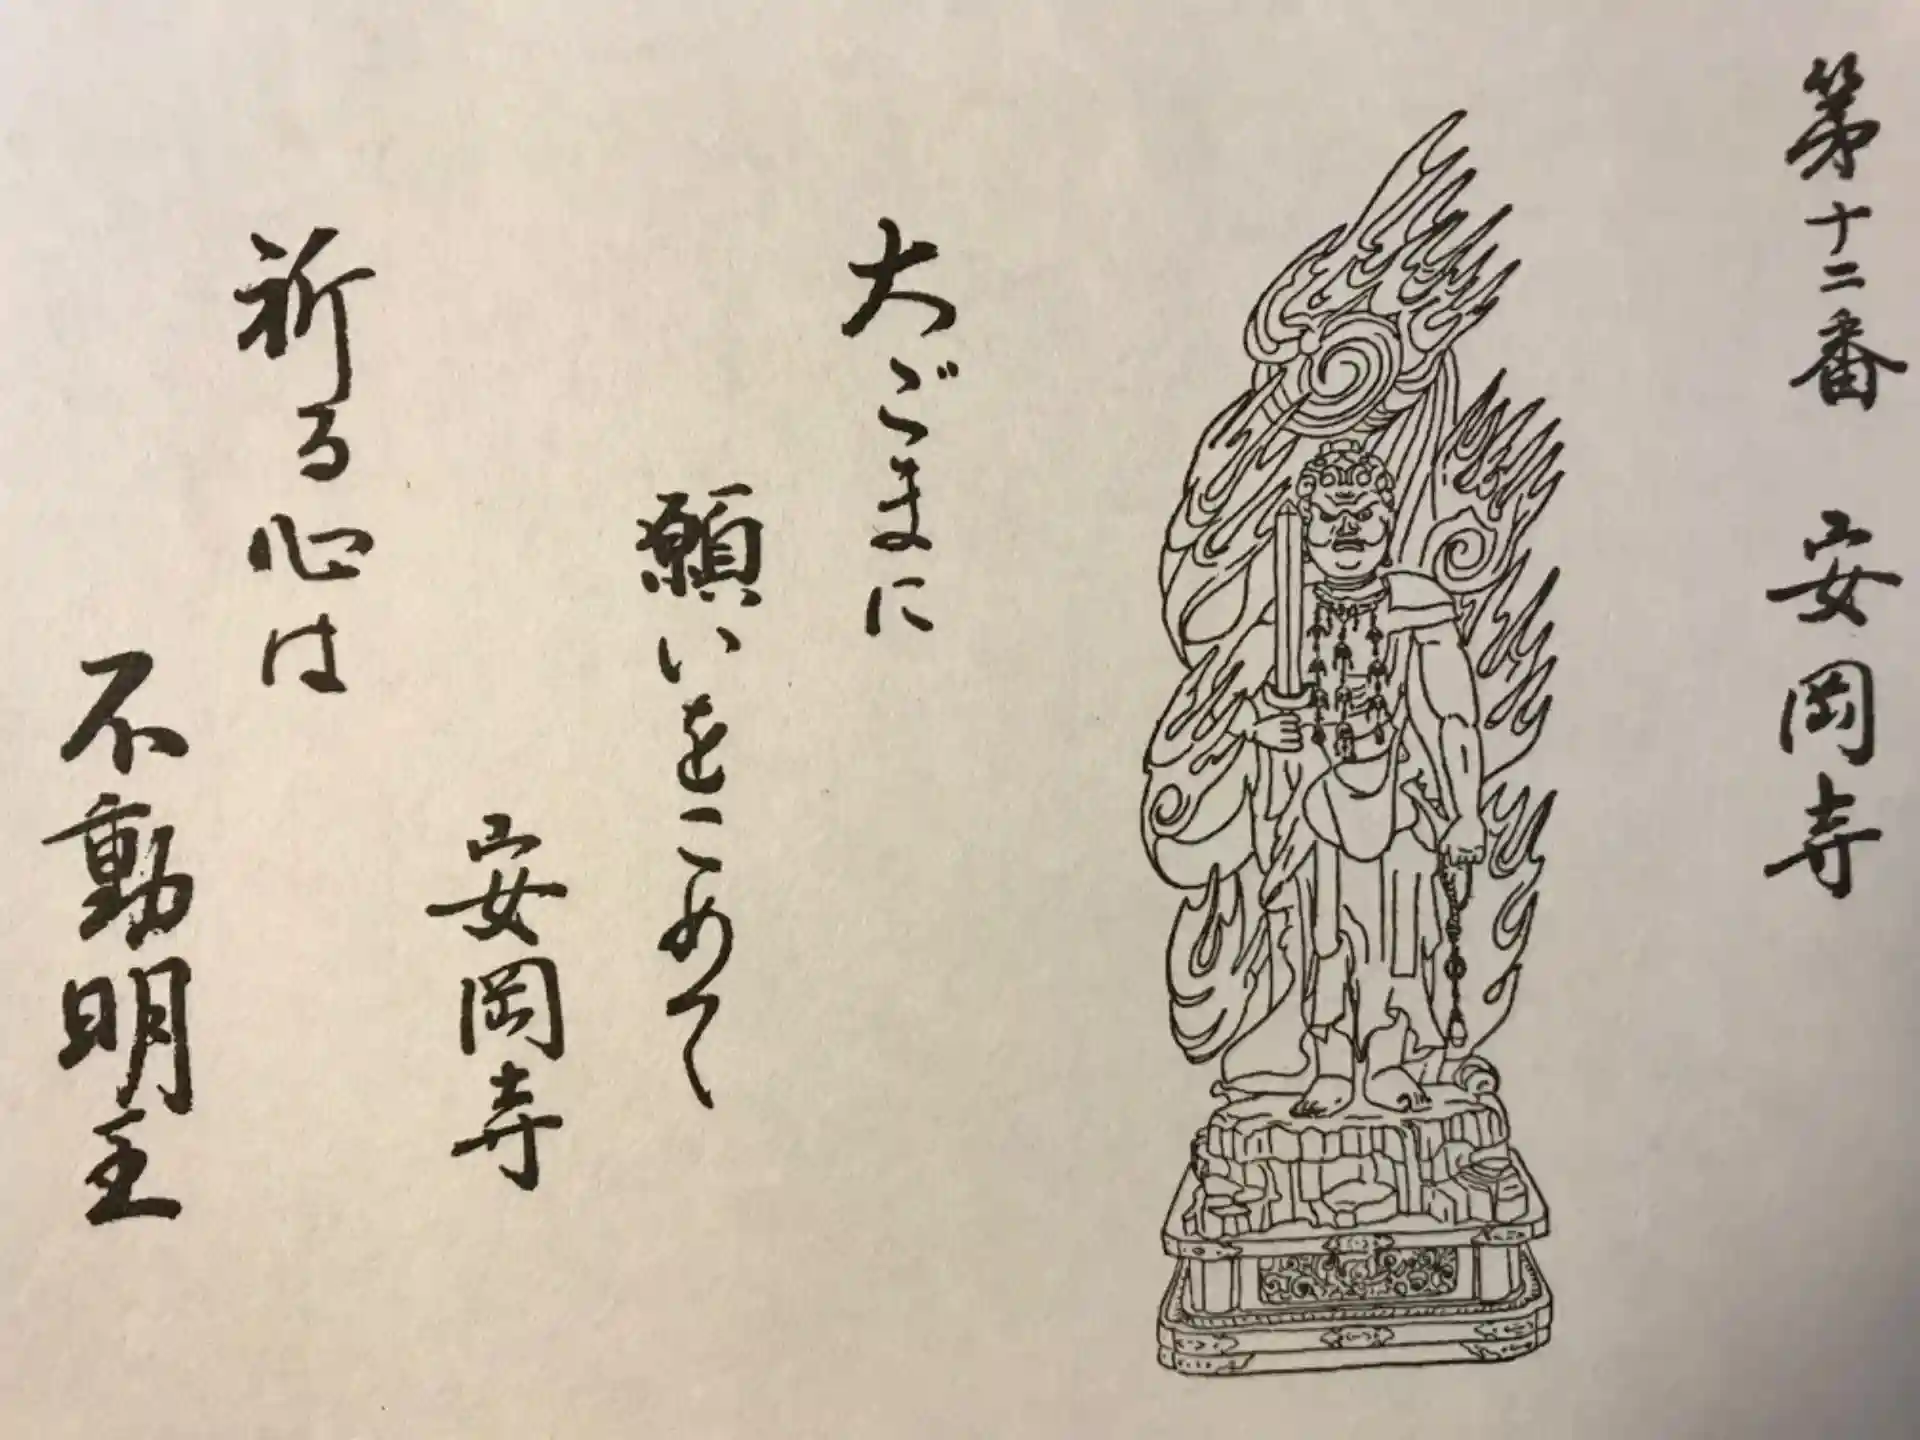 第十二番　安岡寺
大ごまに
願いをこめて
安岡寺
祈る心は
不動明王